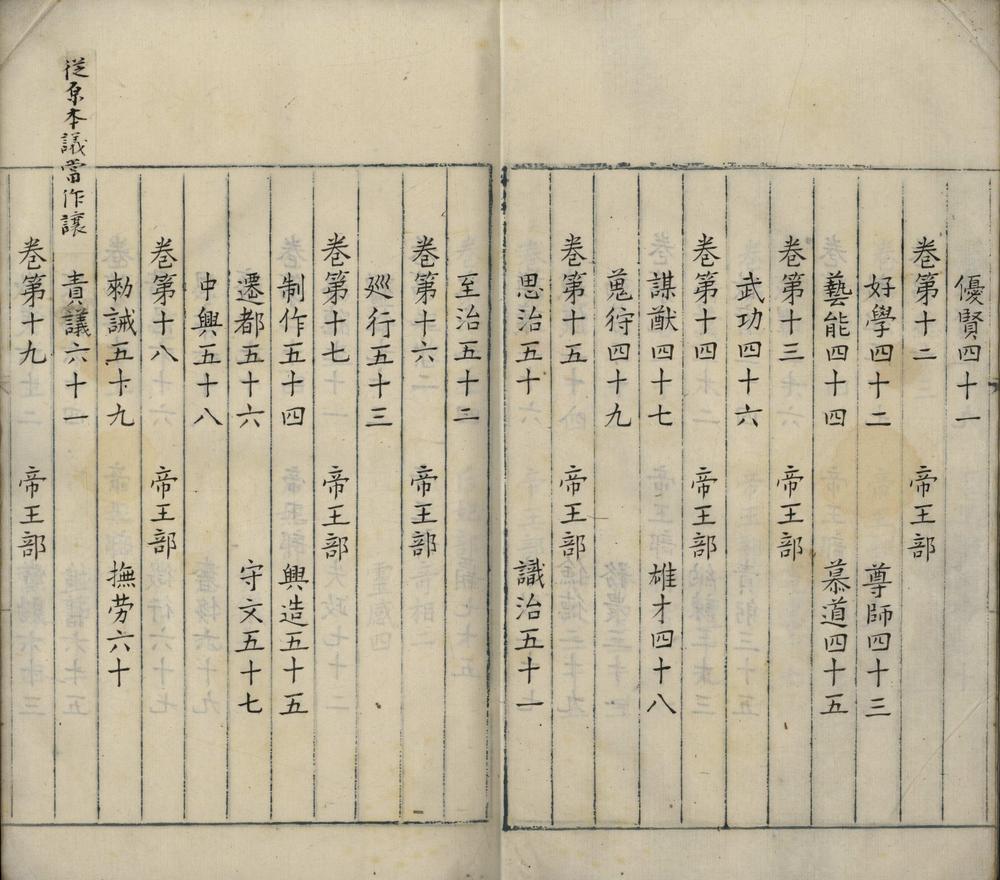 優賢四十一
卷第十二　帝王部
好學四十二　尊師四十三
藝能四十四　慕道四十五
卷第十三　帝王部
武功四十六
卷第十四　帝王部
謀猷四十七　雄才四十八
蒐狩四十九
卷第十五　帝王部
思治五十　識治五十一
至治五十二
卷第十六　帝王部
廵行五十三
卷第十七　帝王部
制作五十四　興造五十五
遷都五十六　守文五十七
中興五十八
卷第十八　帝王部
勑誡五十九　撫劳六十
責議六十一
從原本議當作讓
卷第十九　帝王部